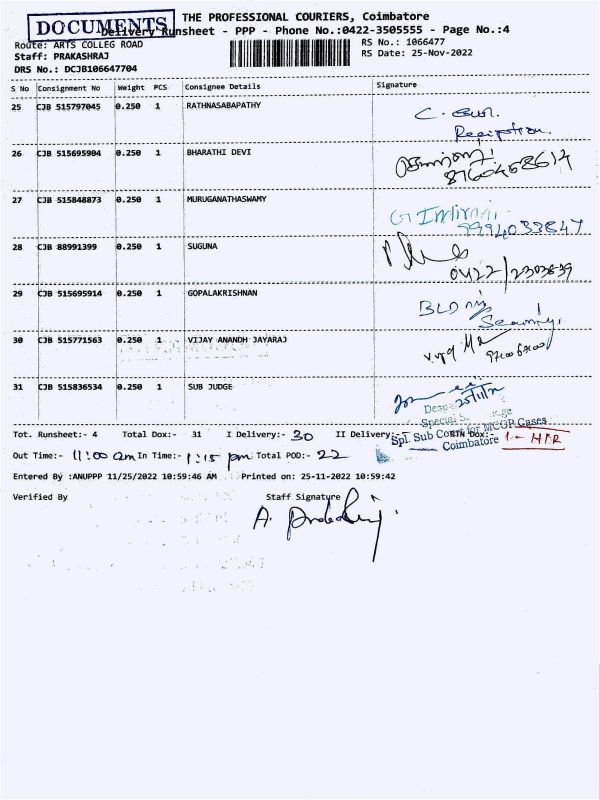 DOCUMENTS
THE PROFESSIONAL COURIERS, Coimbatore
Delivery Runsheet - PPP - Phone No.:0422-3505555 - Page No.:4
Route: ARTS COLLEG ROAD
RS No.: 1066477
Staff: PRAKASHRAJ
RS Date: 25-Nov-2022
DRS No.: DCJB106647704
S No Consignment No Weight PCS Consignee Details Signature
25 CJB 515797045 0.250 1 RATHNASABAPATHY
Reception
26 CJB 515695904 0.250 1 BHARATHI DEVI
27 CJB 515848873 0.250 1 MURUGANATHASWAMY
G Indirani
9994033847
28 CJB 88991399 0.250 1 SUGUNA
0422/2303839
29 CJB 515695914 0.250 1 GOPALAKRISHNAN
30 CJB 515771563 0.250 1 VIJAY ANANDH JAYARAJ
31 CJB 515836534 0.250 1 SUB JUDGE
25/11/22
Spl. Sub Court for MCOP Cases
Coimbatore
Tot. Runsheet:- 4 Total Dox:- 31 I Delivery:- 30 II Delivery:-
Out Time:- 11:00 am In Time:- 1:15 pm Total POD:- 22
Entered By :ANUPPP 11/25/2022 10:59:46 AM Printed on: 25-11-2022 10:59:42
Verified By Staff Signature